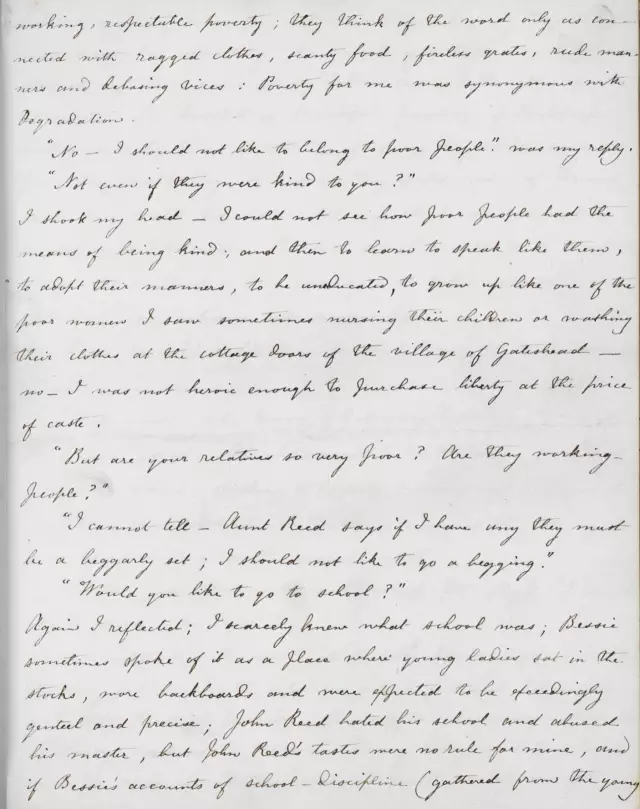 working, respectable poverty; they think of the word only as con-
nected with ragged clothes, scanty food, fireless grates, rude man-
ners and debasing vices: Poverty for me was synonymous with
Degradation.
"No — I should not like to belong to poor people." was my reply.
"Not even if they were kind to you?"
I shook my head — I could not see how poor people had the
means of being kind; and then to learn to speak like them,
to adopt their manners, to be uneducated, to grow up like one of the
poor women I saw sometimes nursing their children or washing
their clothes at the cottage doors of the village of Gateshead —
no — I was not heroic enough to purchase liberty at the price
of caste.
"But are your relatives so very poor? Are they working-
people?"
"I cannot tell — Aunt Reed says if I have any they must
be a beggarly set; I should not like to go a begging."
"Would you like to go to school?"
Again I reflected; I scarcely knew what school was; Bessie
sometimes spoke of it as a place where young ladies sat in the
stocks, wore backboards and were expected to be exceedingly
genteel and precise; John Reed hated his school and abused
his master, but John Reed's tastes were no rule for mine, and
if Bessie's accounts of school-discipline (gathered from the young